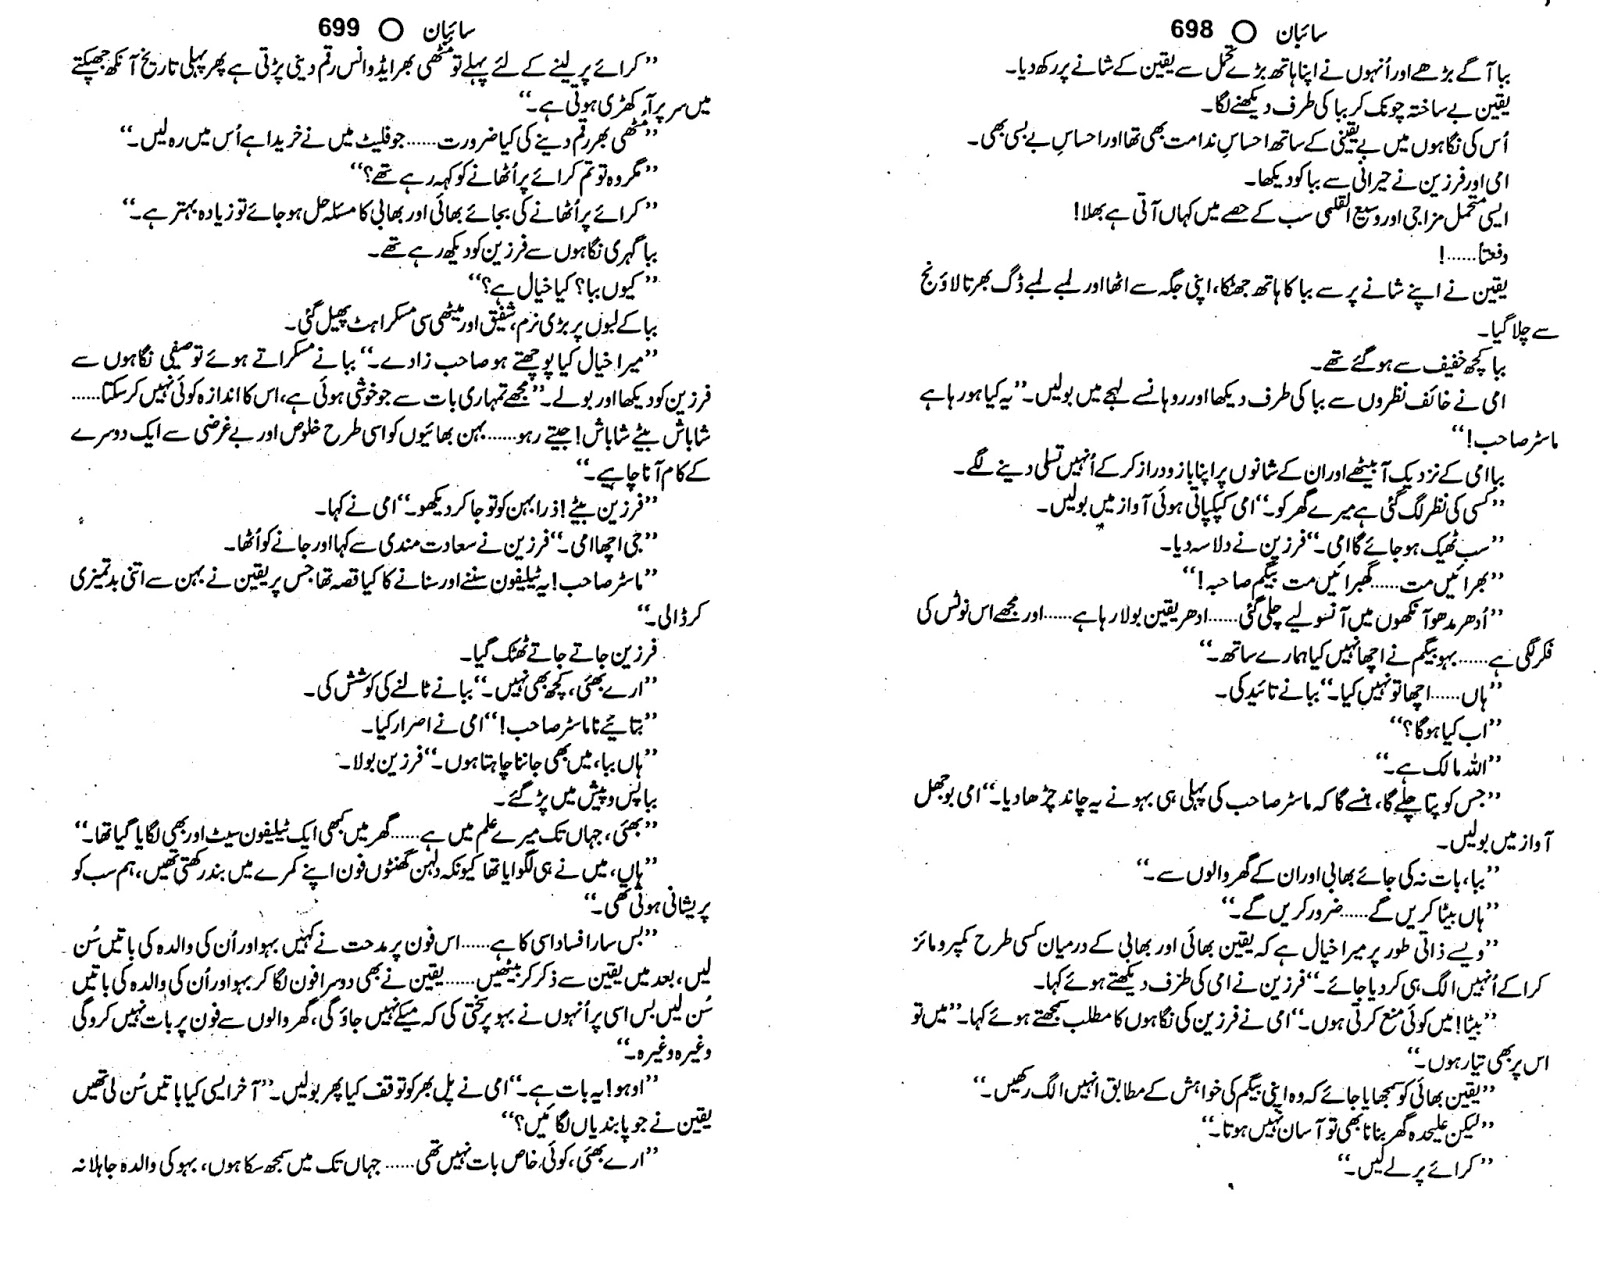 سائبان ○ 698
ببا آگے بڑھے اور اُنہوں نے اپنا ہاتھ بڑے تحمل سے یقین کے شانے پر رکھ دیا۔
یقین بے ساختہ چونک کر ببا کی طرف دیکھنے لگا۔
اُس کی نگاہوں میں بے یقینی کے ساتھ احساسِ ندامت بھی تھا اور احساسِ بے بسی بھی۔
امی اور فرزین نے حیرانی سے ببا کو دیکھا۔
ایسی متحمل مزاجی اور وسیع القلبی سب کے حصے میں کہاں آتی ہے بھلا!
دفعتاً......!
یقین نے اپنے شانے پر سے ببا کا ہاتھ جھٹکا، اپنی جگہ سے اٹھا اور لمبے لمبے ڈگ بھرتا لاؤنج
سے چلا گیا۔
ببا کچھ خفیف سے ہو گئے تھے۔
امی نے خائف نظروں سے ببا کی طرف دیکھا اور روہانسے لہجے میں بولیں۔ ”یہ کیا ہو رہا ہے
ماسٹر صاحب!“
ببا امی کے نزدیک آ بیٹھے اور ان کے شانوں پر اپنا بازو دراز کر کے اُنہیں تسلی دینے لگے۔
”کسی کی نظر لگ گئی ہے میرے گھر کو۔“ امی کپکپاتی ہوئی آواز میں بولیں۔
”سب ٹھیک ہو جائے گا امی۔“ فرزین نے دلاسہ دیا۔
”بھرائیں مت......گھبرائیں مت بیگم صاحبہ!“
”اُدھر مدھو آنکھوں میں آنسو لیے چلی گئی......ادھر یقین بولا رہا ہے......اور مجھے اس نوٹس کی
فکر لگی ہے......بہو بیگم نے اچھا نہیں کیا ہمارے ساتھ۔“
”ہاں......اچھا تو نہیں کیا۔“ ببا نے تائید کی۔
”اب کیا ہوگا؟“
”اللہ مالک ہے۔“
”جس کو پتا چلے گا، ہنسے گا کہ ماسٹر صاحب کی پہلی ہی بہو نے یہ چاند چڑھا دیا۔“ امی بوجھل
آواز میں بولیں۔
”ببا، بات نہ کی جائے بھابی اور ان کے گھر والوں سے۔“
”ہاں بیٹا کریں گے......ضرور کریں گے۔“
”ویسے ذاتی طور پر میرا خیال ہے کہ یقین بھائی اور بھابی کے درمیان کسی طرح کمپرومائز
کرا کے اُنہیں الگ ہی کر دیا جائے۔“ فرزین نے امی کی طرف دیکھتے ہوئے کہا۔
”بیٹا! میں کوئی منع کرتی ہوں۔“ امی نے فرزین کی نگاہوں کا مطلب سمجھتے ہوئے کہا۔ ”میں تو
اس پر بھی تیار ہوں۔“
”یقین بھائی کو سمجھایا جائے کہ وہ اپنی بیگم کی خواہش کے مطابق انہیں الگ رکھیں۔“
”لیکن علیحدہ گھر بنانا بھی تو آسان نہیں ہوتا۔“
”کرائے پر لے لیں۔“
سائبان ○ 699
”کرائے پر لینے کے لئے پہلے تو مٹھی بھر ایڈوانس رقم دینی پڑتی ہے پھر پہلی تاریخ آنکھ جھپکتے
میں سر پر آ کھڑی ہوتی ہے۔“
”مٹھی بھر رقم دینے کی کیا ضرورت......جو فلیٹ میں نے خریدا ہے اُس میں رہ لیں۔“
”مگر وہ تو تم کرائے پر اُٹھانے کو کہہ رہے تھے؟“
”کرائے پر اُٹھانے کی بجائے بھائی اور بھابی کا مسئلہ حل ہو جائے تو زیادہ بہتر ہے۔“
ببا گہری نگاہوں سے فرزین کو دیکھ رہے تھے۔
”کیوں ببا؟ کیا خیال ہے؟“
ببا کے لبوں پر بڑی نرم، شفیق اور میٹھی سی مسکراہٹ پھیل گئی۔
”میرا خیال کیا پوچھتے ہو صاحب زادے۔“ ببا نے مسکراتے ہوئے توصیفی نگاہوں سے
فرزین کو دیکھا اور بولے۔ ”مجھے تمہاری بات سے جو خوشی ہوئی ہے، اس کا اندازہ کوئی نہیں کر سکتا......
شاباش بیٹے شاباش! جیتے رہو......بہن بھائیوں کو اسی طرح خلوص اور بے غرضی سے ایک دوسرے
کے کام آنا چاہیے۔“
”فرزین بیٹے! ذرا بہن کو تو جا کر دیکھو۔“ امی نے کہا۔
”جی اچھا امی۔“ فرزین نے سعادت مندی سے کہا اور جانے کو اُٹھا۔
”ماسٹر صاحب! یہ ٹیلیفون سننے اور سنانے کا کیا قصہ تھا جس پر یقین نے بہن سے اتنی بدتمیزی
کر ڈالی۔“
فرزین جاتے جاتے ٹھٹک گیا۔
”ارے بھئی، کچھ بھی نہیں۔“ ببا نے ٹالنے کی کوشش کی۔
”بتائیے نا ماسٹر صاحب!“ امی نے اصرار کیا۔
”ہاں ببا، میں بھی جاننا چاہتا ہوں۔“ فرزین بولا۔
ببا پس و پیش میں پڑ گئے۔
”بھئی، جہاں تک میرے علم میں ہے......گھر میں کبھی ایک ٹیلیفون سیٹ اور بھی لگایا گیا تھا۔“
”ہاں، میں نے ہی لگوایا تھا کیونکہ دلہن گھنٹوں فون اپنے کمرے میں بند رکھتی تھیں، ہم سب کو
پریشانی ہوتی تھی۔“
”بس سارا فساد اسی کا ہے......اس فون پر مدحت نے کہیں بہو اور اُن کی والدہ کی باتیں سُن
لیں، بعد میں یقین سے ذکر کر بیٹھیں......یقین نے بھی دوسرا فون لگا کر بہو اور اُن کی والدہ کی باتیں
سُن لیں بس اسی پر اُنہوں نے بہو پر سختی کی کہ میکے نہیں جاؤ گی، گھر والوں سے فون پر بات نہیں کرو گی
وغیرہ وغیرہ۔“
”اوہو! یہ بات ہے۔“ امی نے پل بھر کو توقف کیا پھر بولیں۔ ”آخر ایسی کیا باتیں سُن لی تھیں
یقین نے جو پابندیاں لگائیں؟“
”ارے بھئی، کوئی خاص بات نہیں تھی......جہاں تک میں سمجھ سکا ہوں، بہو کی والدہ جاہلانہ